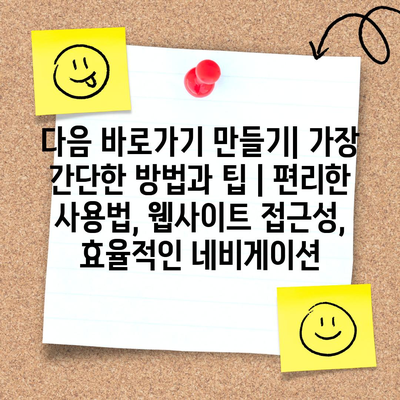 다음 바로가기 만들기| 가장
간단한 방법과 팁 | 편리한
사용법, 웹사이트 접근성,
효율적인 네비게이션